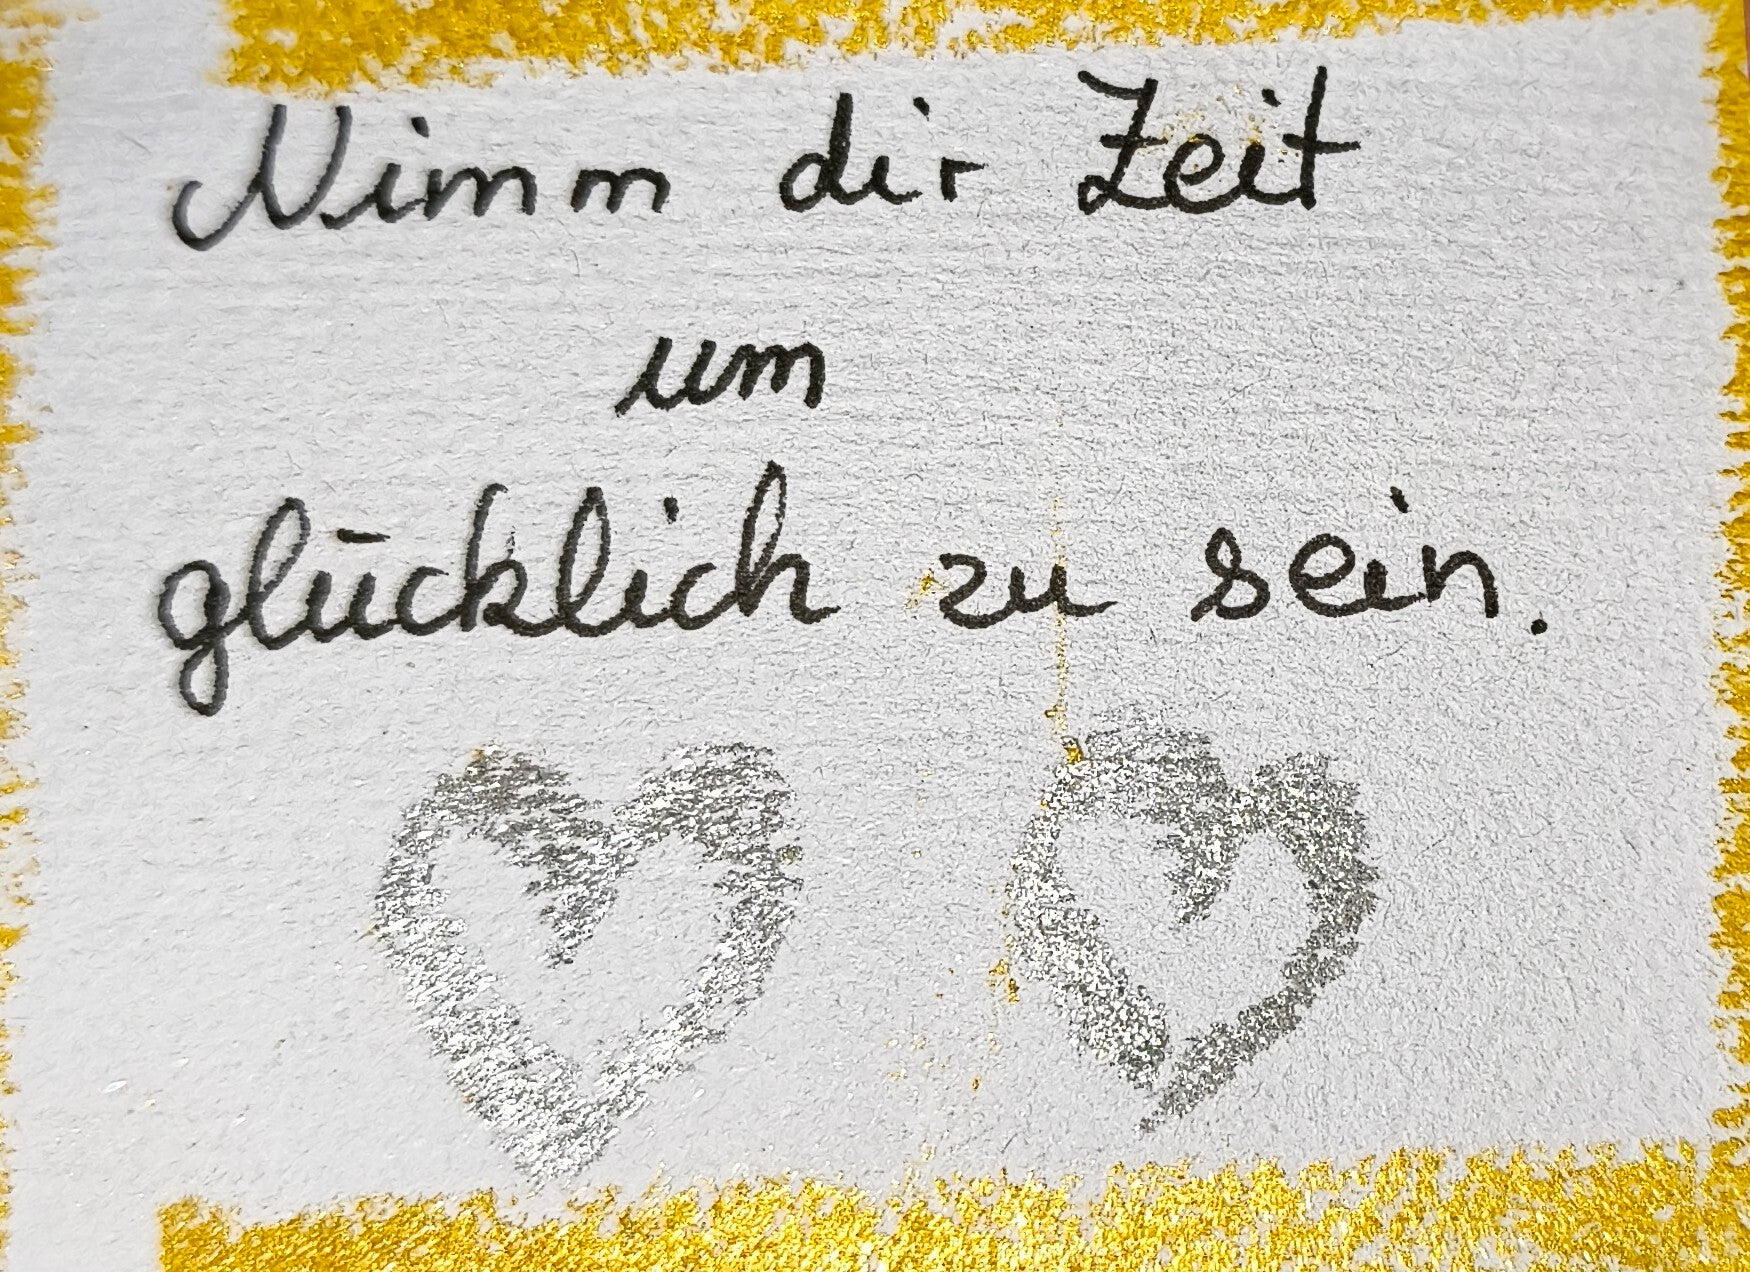 Nimm dir Zeit
um
glücklich zu sein.